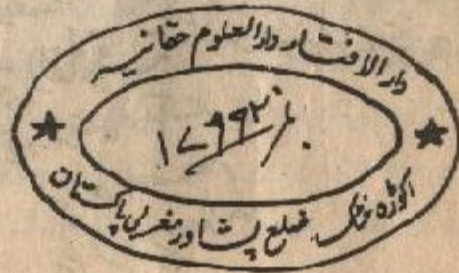 دار الافتاء دار العلوم حقانیہ
نمبر ۱۷۹۹۳
اکوڑہ خٹک ضلع پشاور مغربی پاکستان